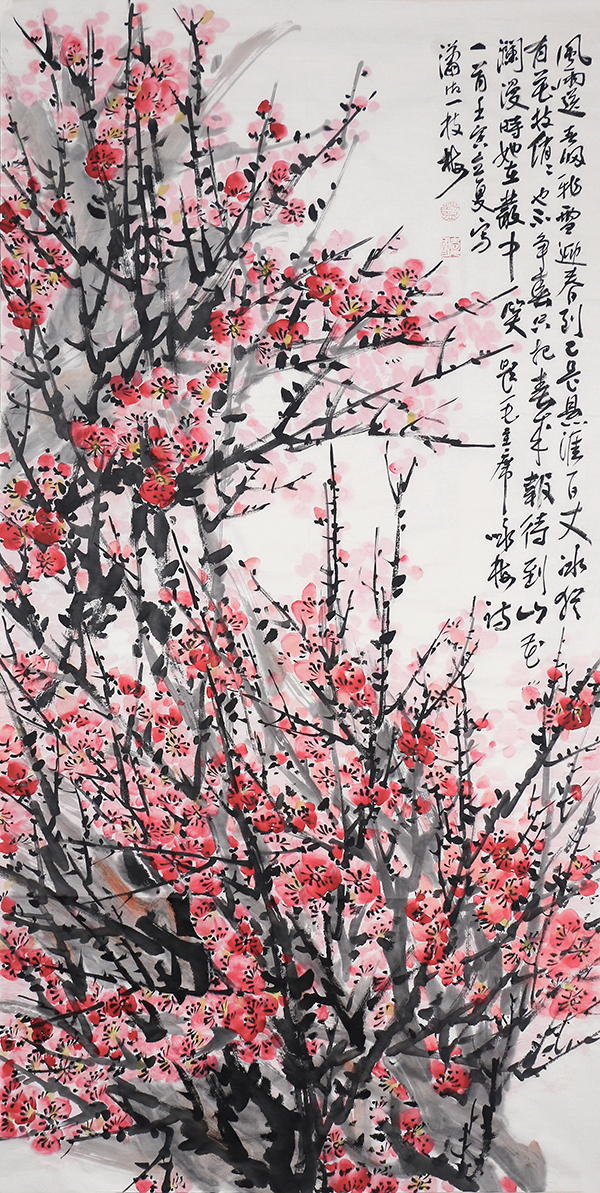 風雨送春歸飛雪迎春到已是懸崖百丈冰猶
有花枝俏俏也不争春只把春来報待到山花
瀾漫時她在叢中一笑 题毛主席咏梅詩
一首壬寅立夏寫
瀟湘一枝梅